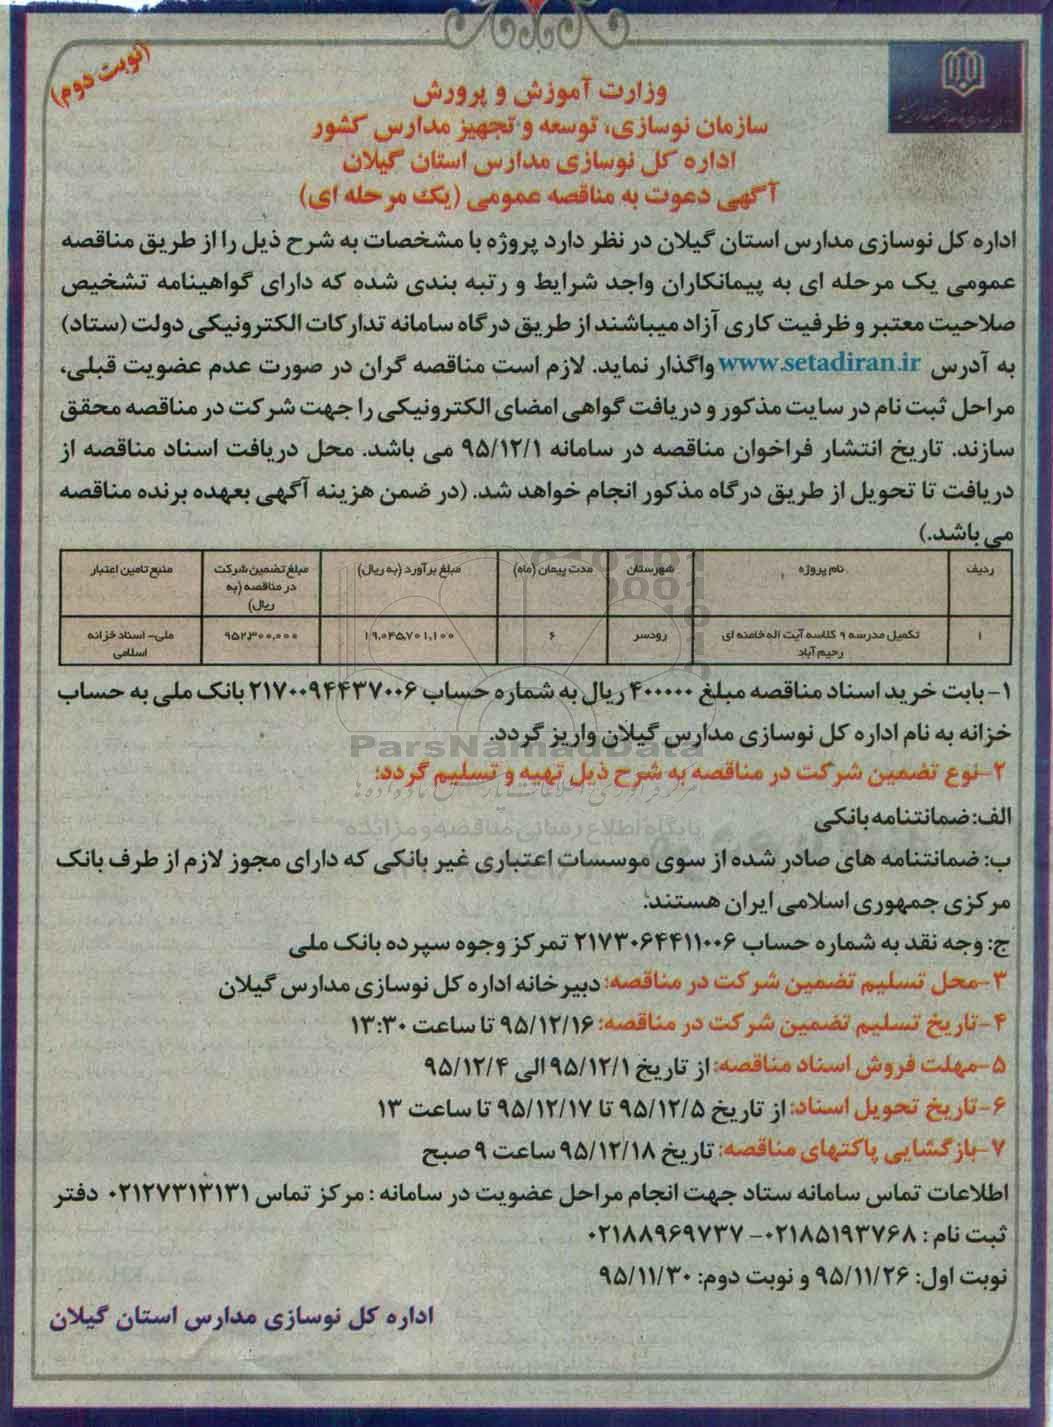 (نوبت دوم)
وزارت آموزش و پرورش
سازمان نوسازی، توسعه و تجهیز مدارس کشور
اداره کل نوسازی مدارس استان گیلان
آگهی دعوت به مناقصه عمومی (یک مرحله ای)
اداره کل نوسازی مدارس استان گیلان در نظر دارد پروژه با مشخصات به شرح ذیل را از طریق مناقصه
عمومی یک مرحله ای به پیمانکاران واجد شرایط و رتبه بندی شده که دارای گواهینامه تشخیص
صلاحیت معتبر و ظرفیت کاری آزاد میباشند از طریق درگاه سامانه تدارکات الکترونیکی دولت (ستاد)
به آدرس www.setadiran.ir واگذار نماید. لازم است مناقصه گران در صورت عدم عضویت قبلی،
مراحل ثبت نام در سایت مذکور و دریافت گواهی امضای الکترونیکی را جهت شرکت در مناقصه محقق
سازند. تاریخ انتشار فراخوان مناقصه در سامانه ۹۵/۱۲/۱ می باشد. محل دریافت اسناد مناقصه از
دریافت تا تحویل از طریق درگاه مذکور انجام خواهد شد. (در ضمن هزینه آگهی بعهده برنده مناقصه
می باشد.)
ردیف | نام پروژه | شهرستان | مدت پیمان (ماه) | مبلغ برآورد (به ریال) | مبلغ تضمین شرکت در مناقصه (به ریال) | منبع تامین اعتبار
۱ | تکمیل مدرسه ۹ کلاسه آیت اله خامنه ای رحیم آباد | رودسر | ۶ | ۱۹،۰۴۵،۷۰۱،۱۰۰ | ۹۵۲،۳۰۰،۰۰۰ | ملی- اسناد خزانه اسلامی
۱- بابت خرید اسناد مناقصه مبلغ ۴۰۰۰۰۰ ریال به شماره حساب ۲۱۷۰۰۹۴۴۳۷۰۰۶ بانک ملی به حساب
خزانه به نام اداره کل نوسازی مدارس گیلان واریز گردد.
۲-نوع تضمین شرکت در مناقصه به شرح ذیل تهیه و تسلیم گردد:
الف: ضمانتنامه بانکی
ب: ضمانتنامه های صادر شده از سوی موسسات اعتباری غیر بانکی که دارای مجوز لازم از طرف بانک
مرکزی جمهوری اسلامی ایران هستند.
ج: وجه نقد به شماره حساب ۲۱۷۳۰۶۴۴۱۱۰۰۶ تمرکز وجوه سپرده بانک ملی
۳-محل تسلیم تضمین شرکت در مناقصه: دبیرخانه اداره کل نوسازی مدارس گیلان
۴-تاریخ تسلیم تضمین شرکت در مناقصه: ۹۵/۱۲/۱۶ تا ساعت ۱۳:۳۰
۵-مهلت فروش اسناد مناقصه: از تاریخ ۹۵/۱۲/۱ الی ۹۵/۱۲/۴
۶-تاریخ تحویل اسناد: از تاریخ ۹۵/۱۲/۵ تا ۹۵/۱۲/۱۷ تا ساعت ۱۳
۷-بازگشایی پاکتهای مناقصه: تاریخ ۹۵/۱۲/۱۸ ساعت ۹ صبح
اطلاعات تماس سامانه ستاد جهت انجام مراحل عضویت در سامانه : مرکز تماس ۰۲۱۲۷۳۱۳۱۳۱ دفتر
ثبت نام : ۰۲۱۸۵۱۹۳۷۶۸- ۰۲۱۸۸۹۶۹۷۳۷
نوبت اول: ۹۵/۱۱/۲۶ و نوبت دوم: ۹۵/۱۱/۳۰
اداره کل نوسازی مدارس استان گیلان
ParsNamadData
پایگاه اطلاع رسانی مناقصه و مزایده